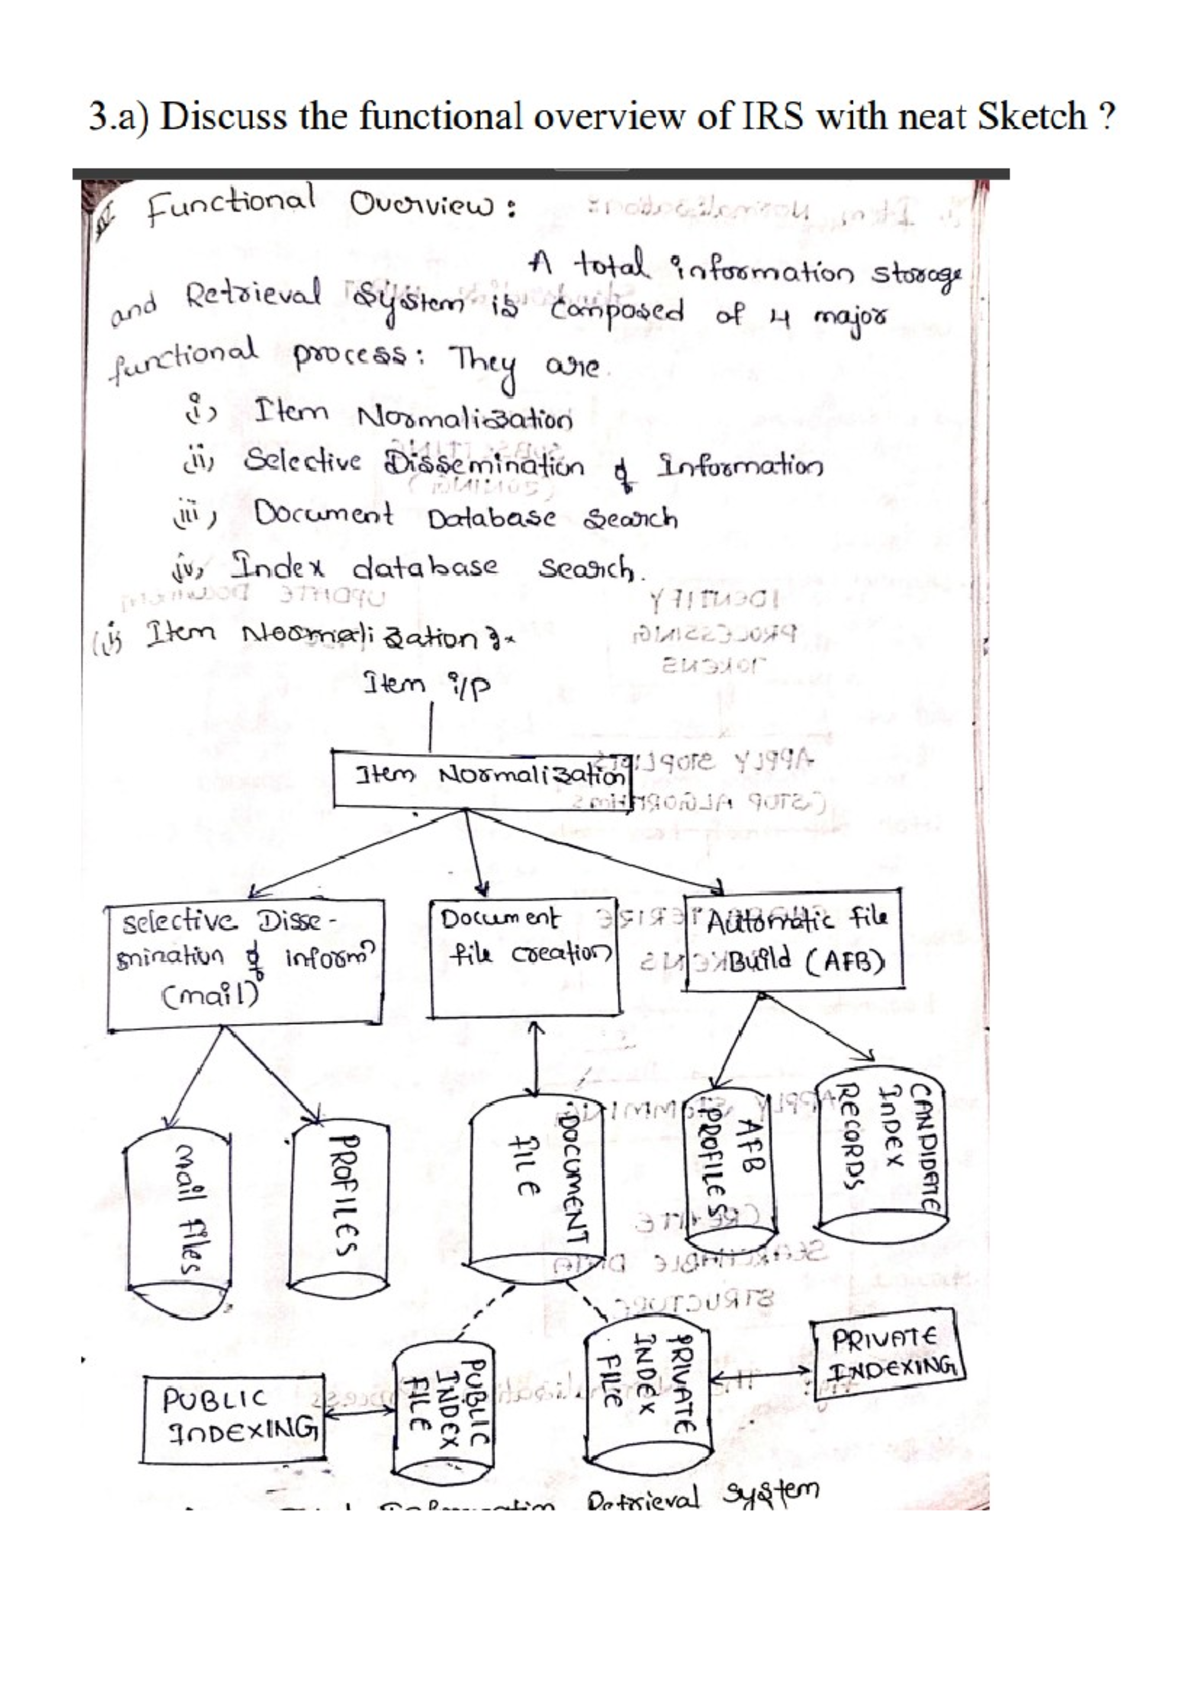 3.a) Discuss the functional overview of IRS with neat Sketch ?
Functional Overview :
A total information storage
and Retrieval System is composed of 4 major
functional process : They are.
i) Item Normalization
ii) Selective Dissemination of Information
iii) Document Database Search
iv) Index database search.
(i) Item Normalization :-
Item i/p
Item Normalization
Selective Disse-
mination of inform?
(mail)
Document
file creation
Automatic file
Build (AFB)
mail files
PROFILES
DOCUMENT
FILE
AFB
PROFILES
CANDIDATE
INDEX
RECORDS
PUBLIC
INDEXING
PUBLIC
INDEX
FILE
PRIVATE
INDEX
FILE
PRIVATE
INDEXING
Retrieval System